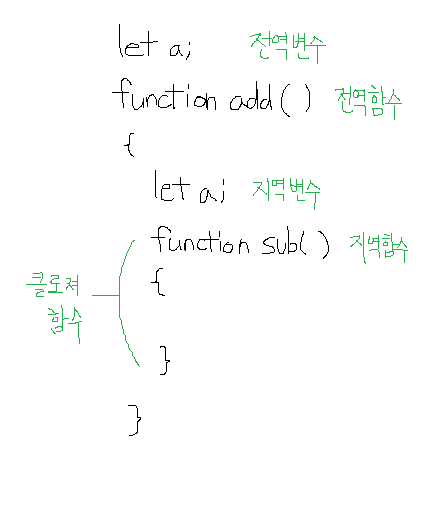 let a; 전역변수
function add() 전역함수
{
let a; 지역변수
function sub() 지역합수
클로져
함수
{
}
}